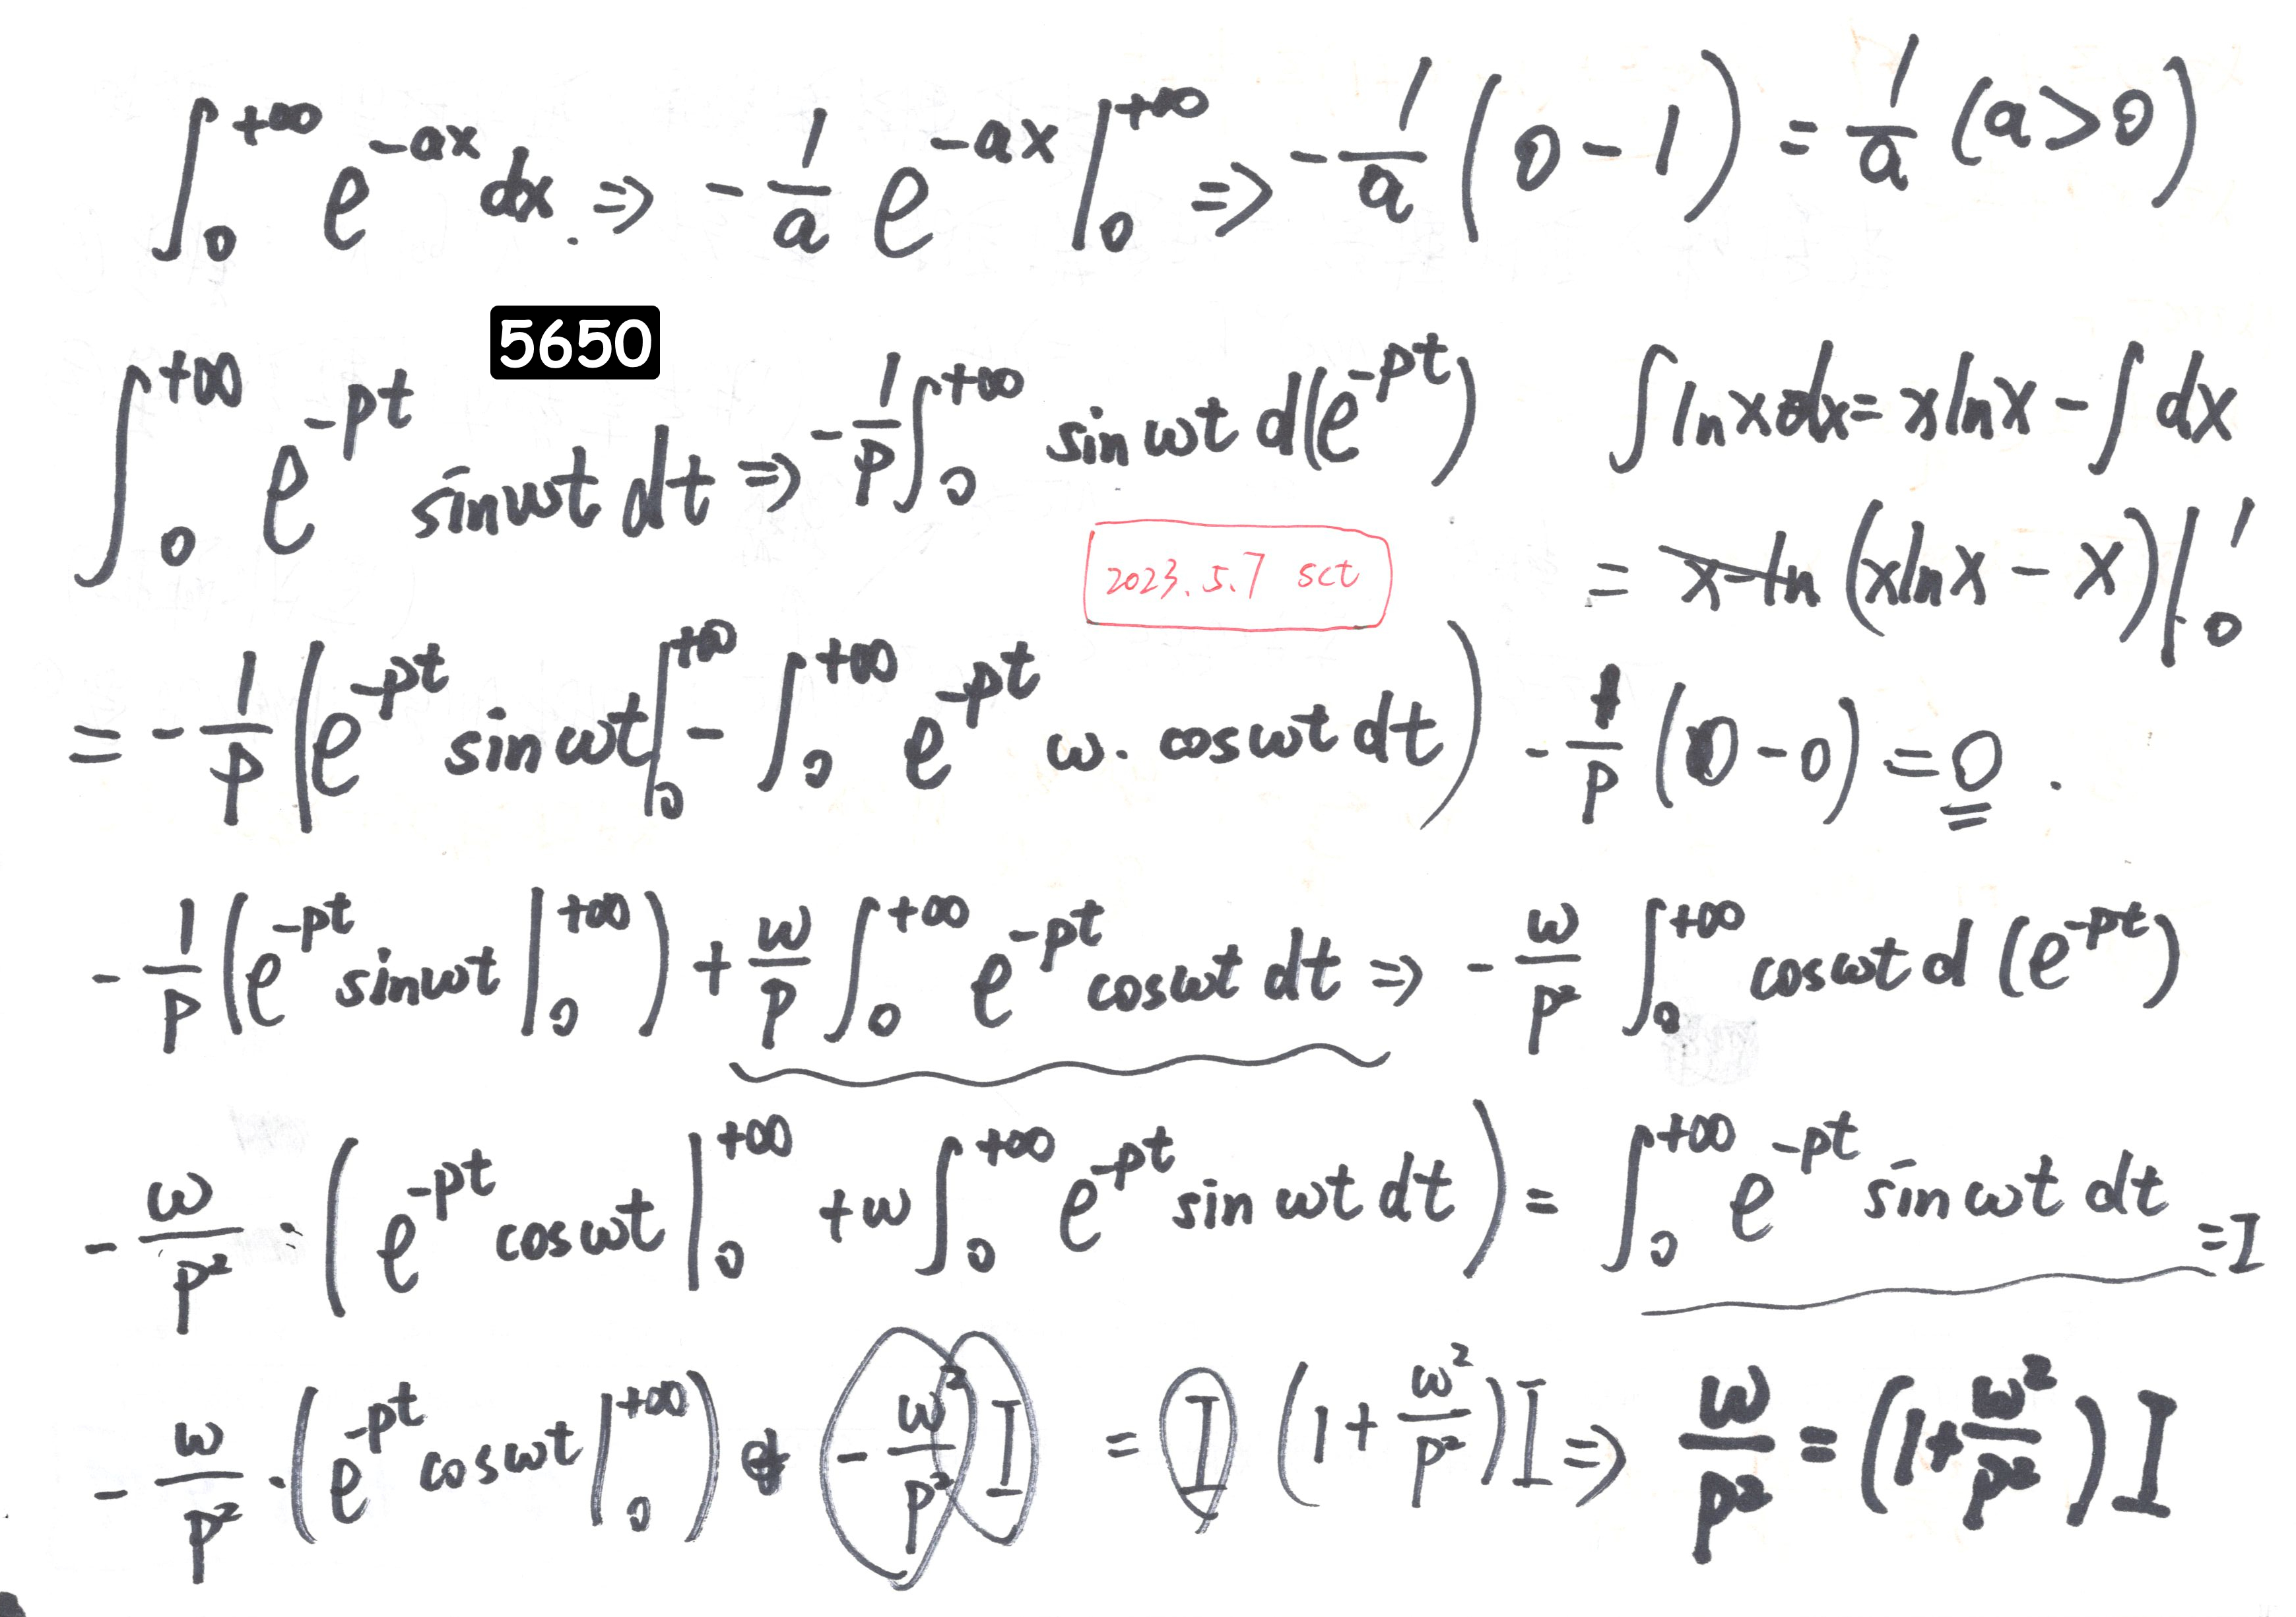 ∫₀^{+∞} e^{-ax} dx. ⇒ -1/a e^{-ax} |₀^{+∞} ⇒ -1/a (0-1) = 1/a (a>0)
5650
∫₀^{+∞} e^{-pt} sinωt dt ⇒ -1/p ∫₀^{+∞} sinωt d(e^{-pt})
∫lnxdx = xlnx - ∫dx
2023.5.7 sct
= x-ln (xlnx - x)|₀^1
= -1/p (e^{-pt} sinωt |₀^{+∞} - ∫₀^{+∞} e^{-pt} ω·cosωt dt)
-1/p (0-0) = 0.
-1/p (e^{-pt} sinωt |₀^{+∞}) + ω/p ∫₀^{+∞} e^{-pt} cosωt dt ⇒ -ω/p² ∫₀^{+∞} cosωt d(e^{-pt})
-ω/p² · (e^{-pt} cosωt |₀^{+∞} + ω∫₀^{+∞} e^{-pt} sinωt dt) = ∫₀^{+∞} e^{-pt} sinωt dt = I
-ω/p² · (e^{-pt} cosωt |₀^{+∞}) -ω²/p² I = I (1+ω²/p²)I ⇒ ω/p² = (1+ω²/p²)I